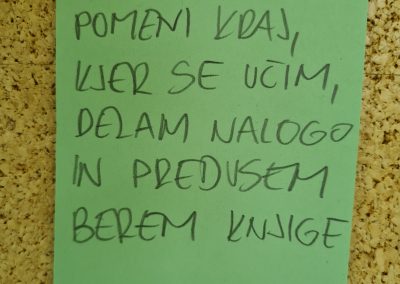 POMENI KRAJ,
KJER SE UČIM,
DELAM NALOGO
IN PREDVSEM
BEREM KNJIGE